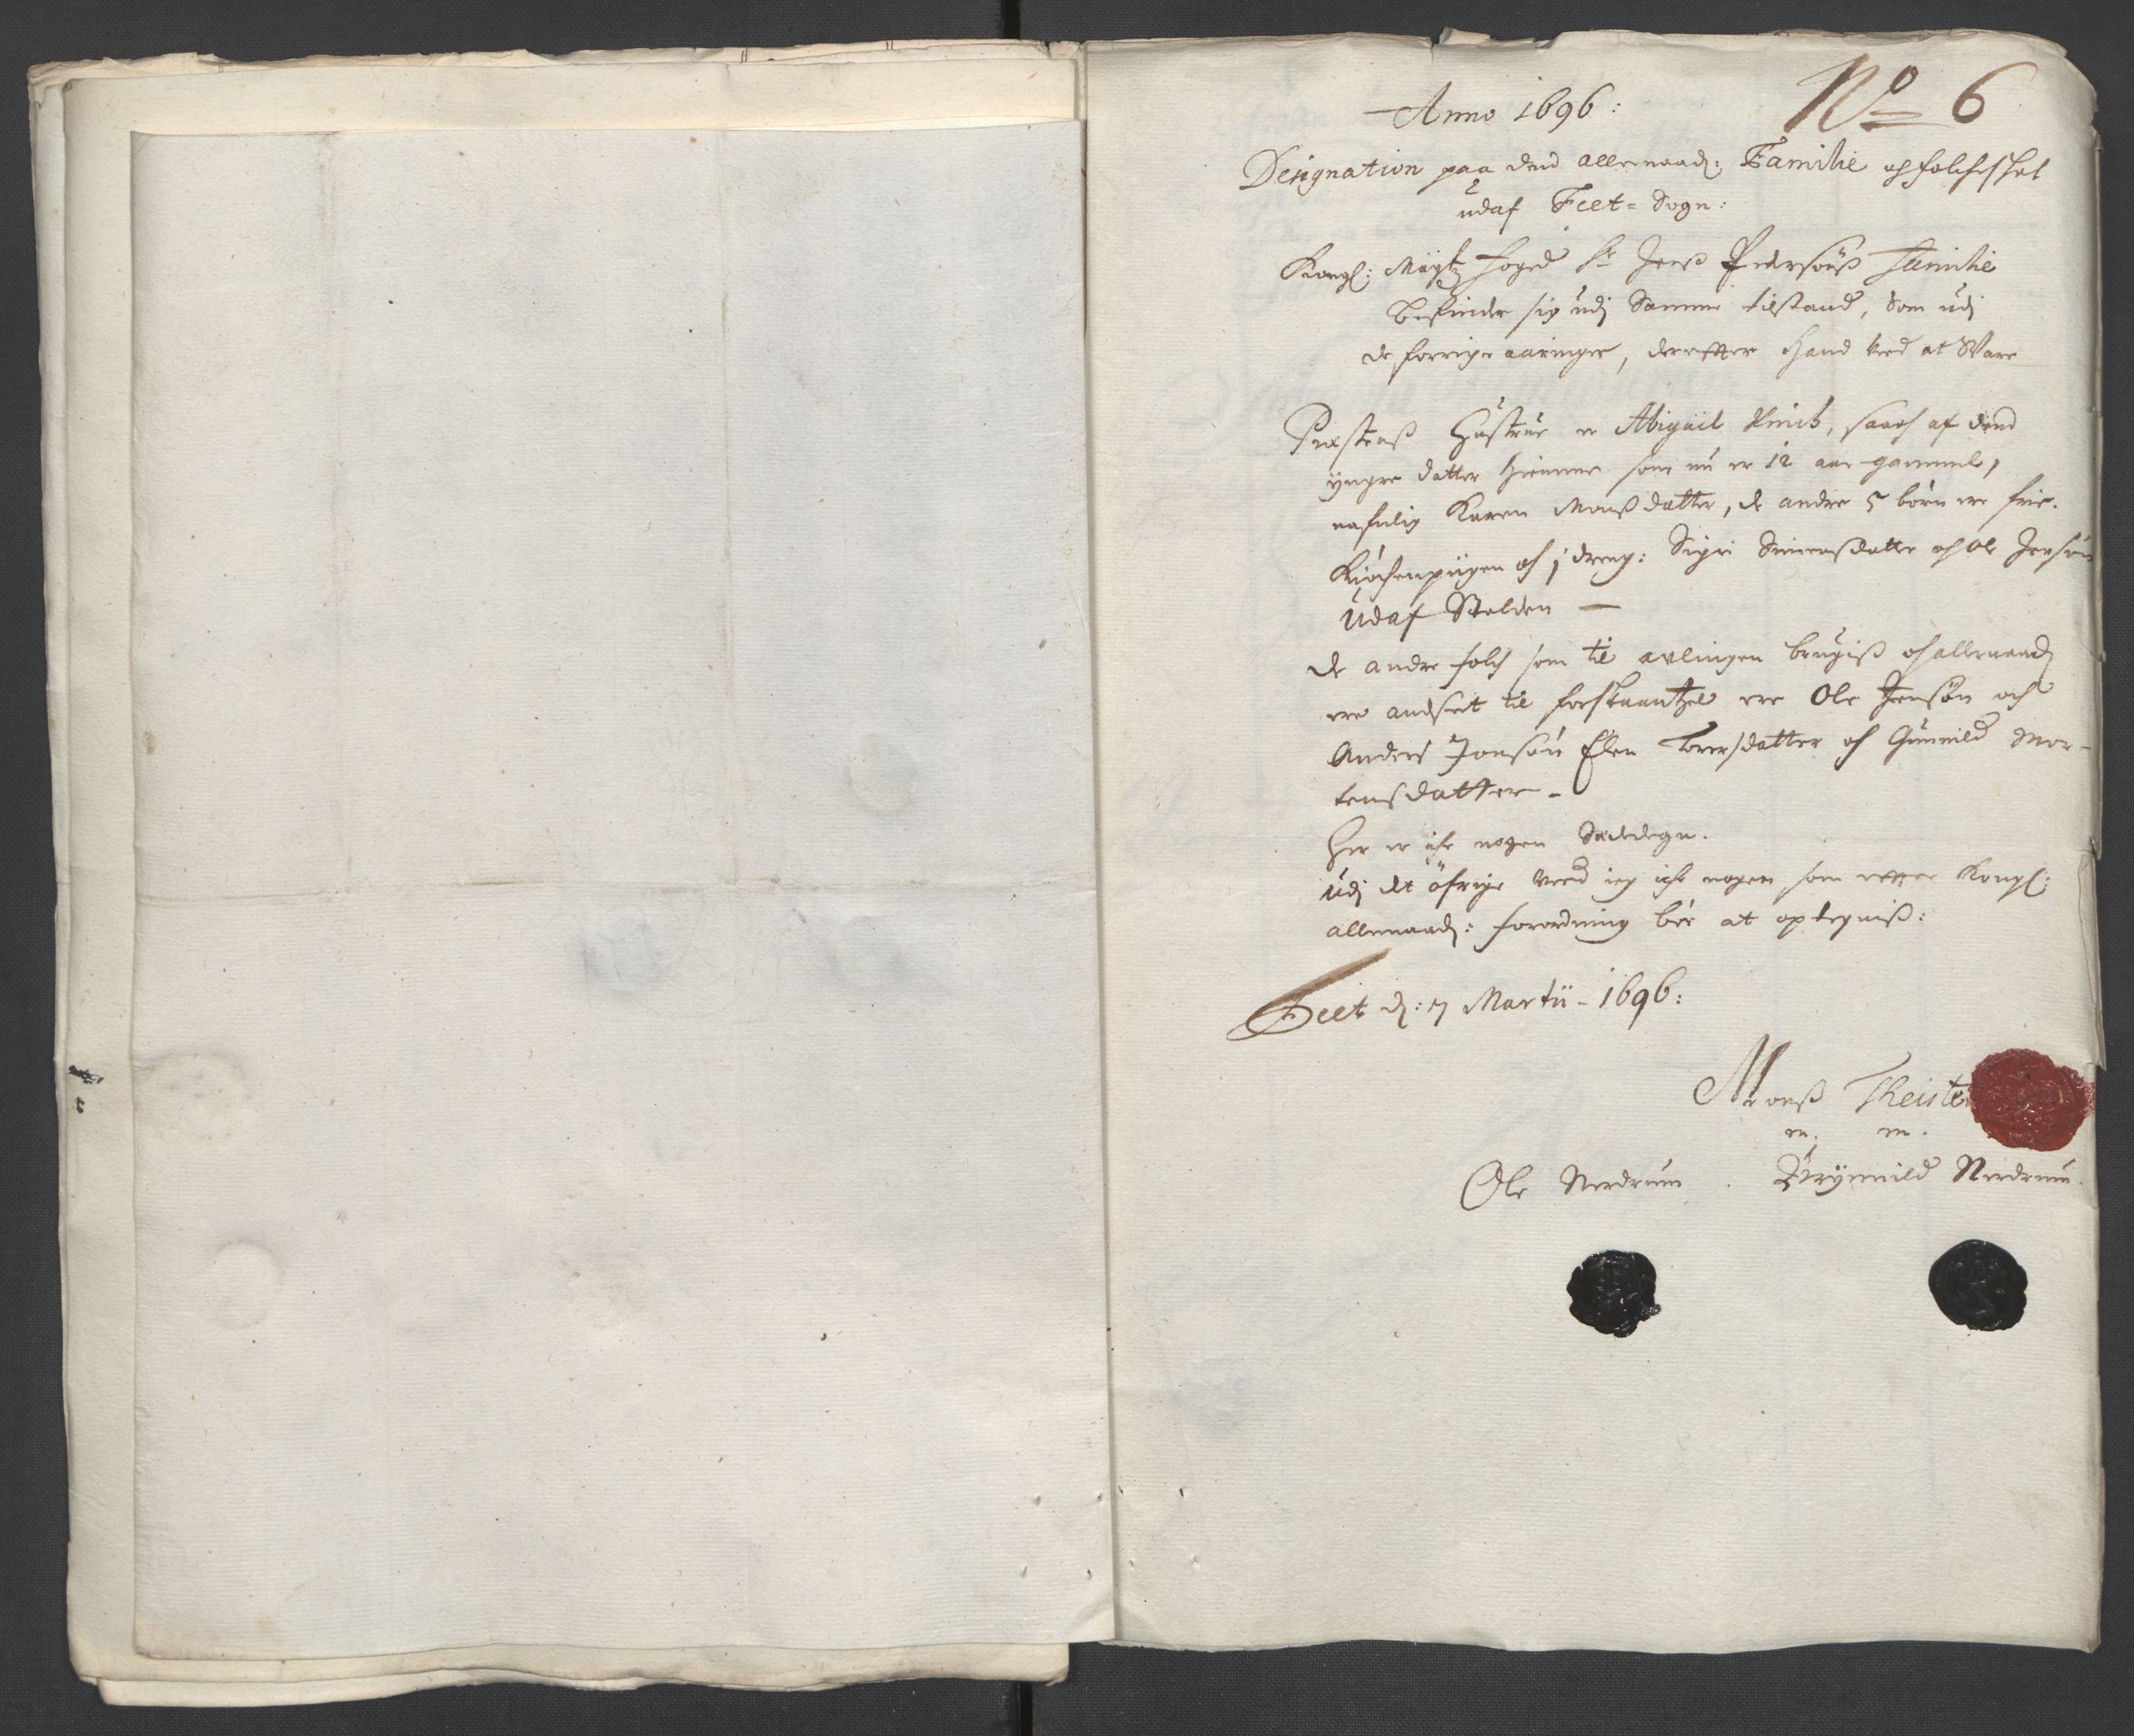 Anno 1696:
No 6
Designation paa dend allernaad: Familie och folcheskat
udaf Feet- Sogn:
Kongl: Mayts foged Sr Jenß Pedersønß Familie
befinder sig udj Samme tilstand, som udj
de forrige aaringer, derefter hand veed at Svare
Præstenß Hustrue er Abigäil Munch, saa och af dend
yngre datter hiemme som nu er 12 aar gammel,
nafnlig Karen Monßdatter, de andre 5 børn ere frie.
Kiøchenpiigen och 1 dreng: Sigri Simensdatter och Ole Jensøn
Udaf Stalden —
de andre folch som til avlingen brugiß och allernaad
ere andseet til forskaantzel ere Ole Jensøn och
Anders Jonsøn Elen Torersdatter och Gunnild Mor-
tensdatter -
Her er iche nogen Sædedegn.
Udj det øfrige veed ieg iche nogen som efter Kongl:
allernaad: forordning bør at optegniß:
Feet d: 7 Martii - 1696:
Monß Theiste
m. m.
Ole Nerdrum . Brynild Nerdrum.